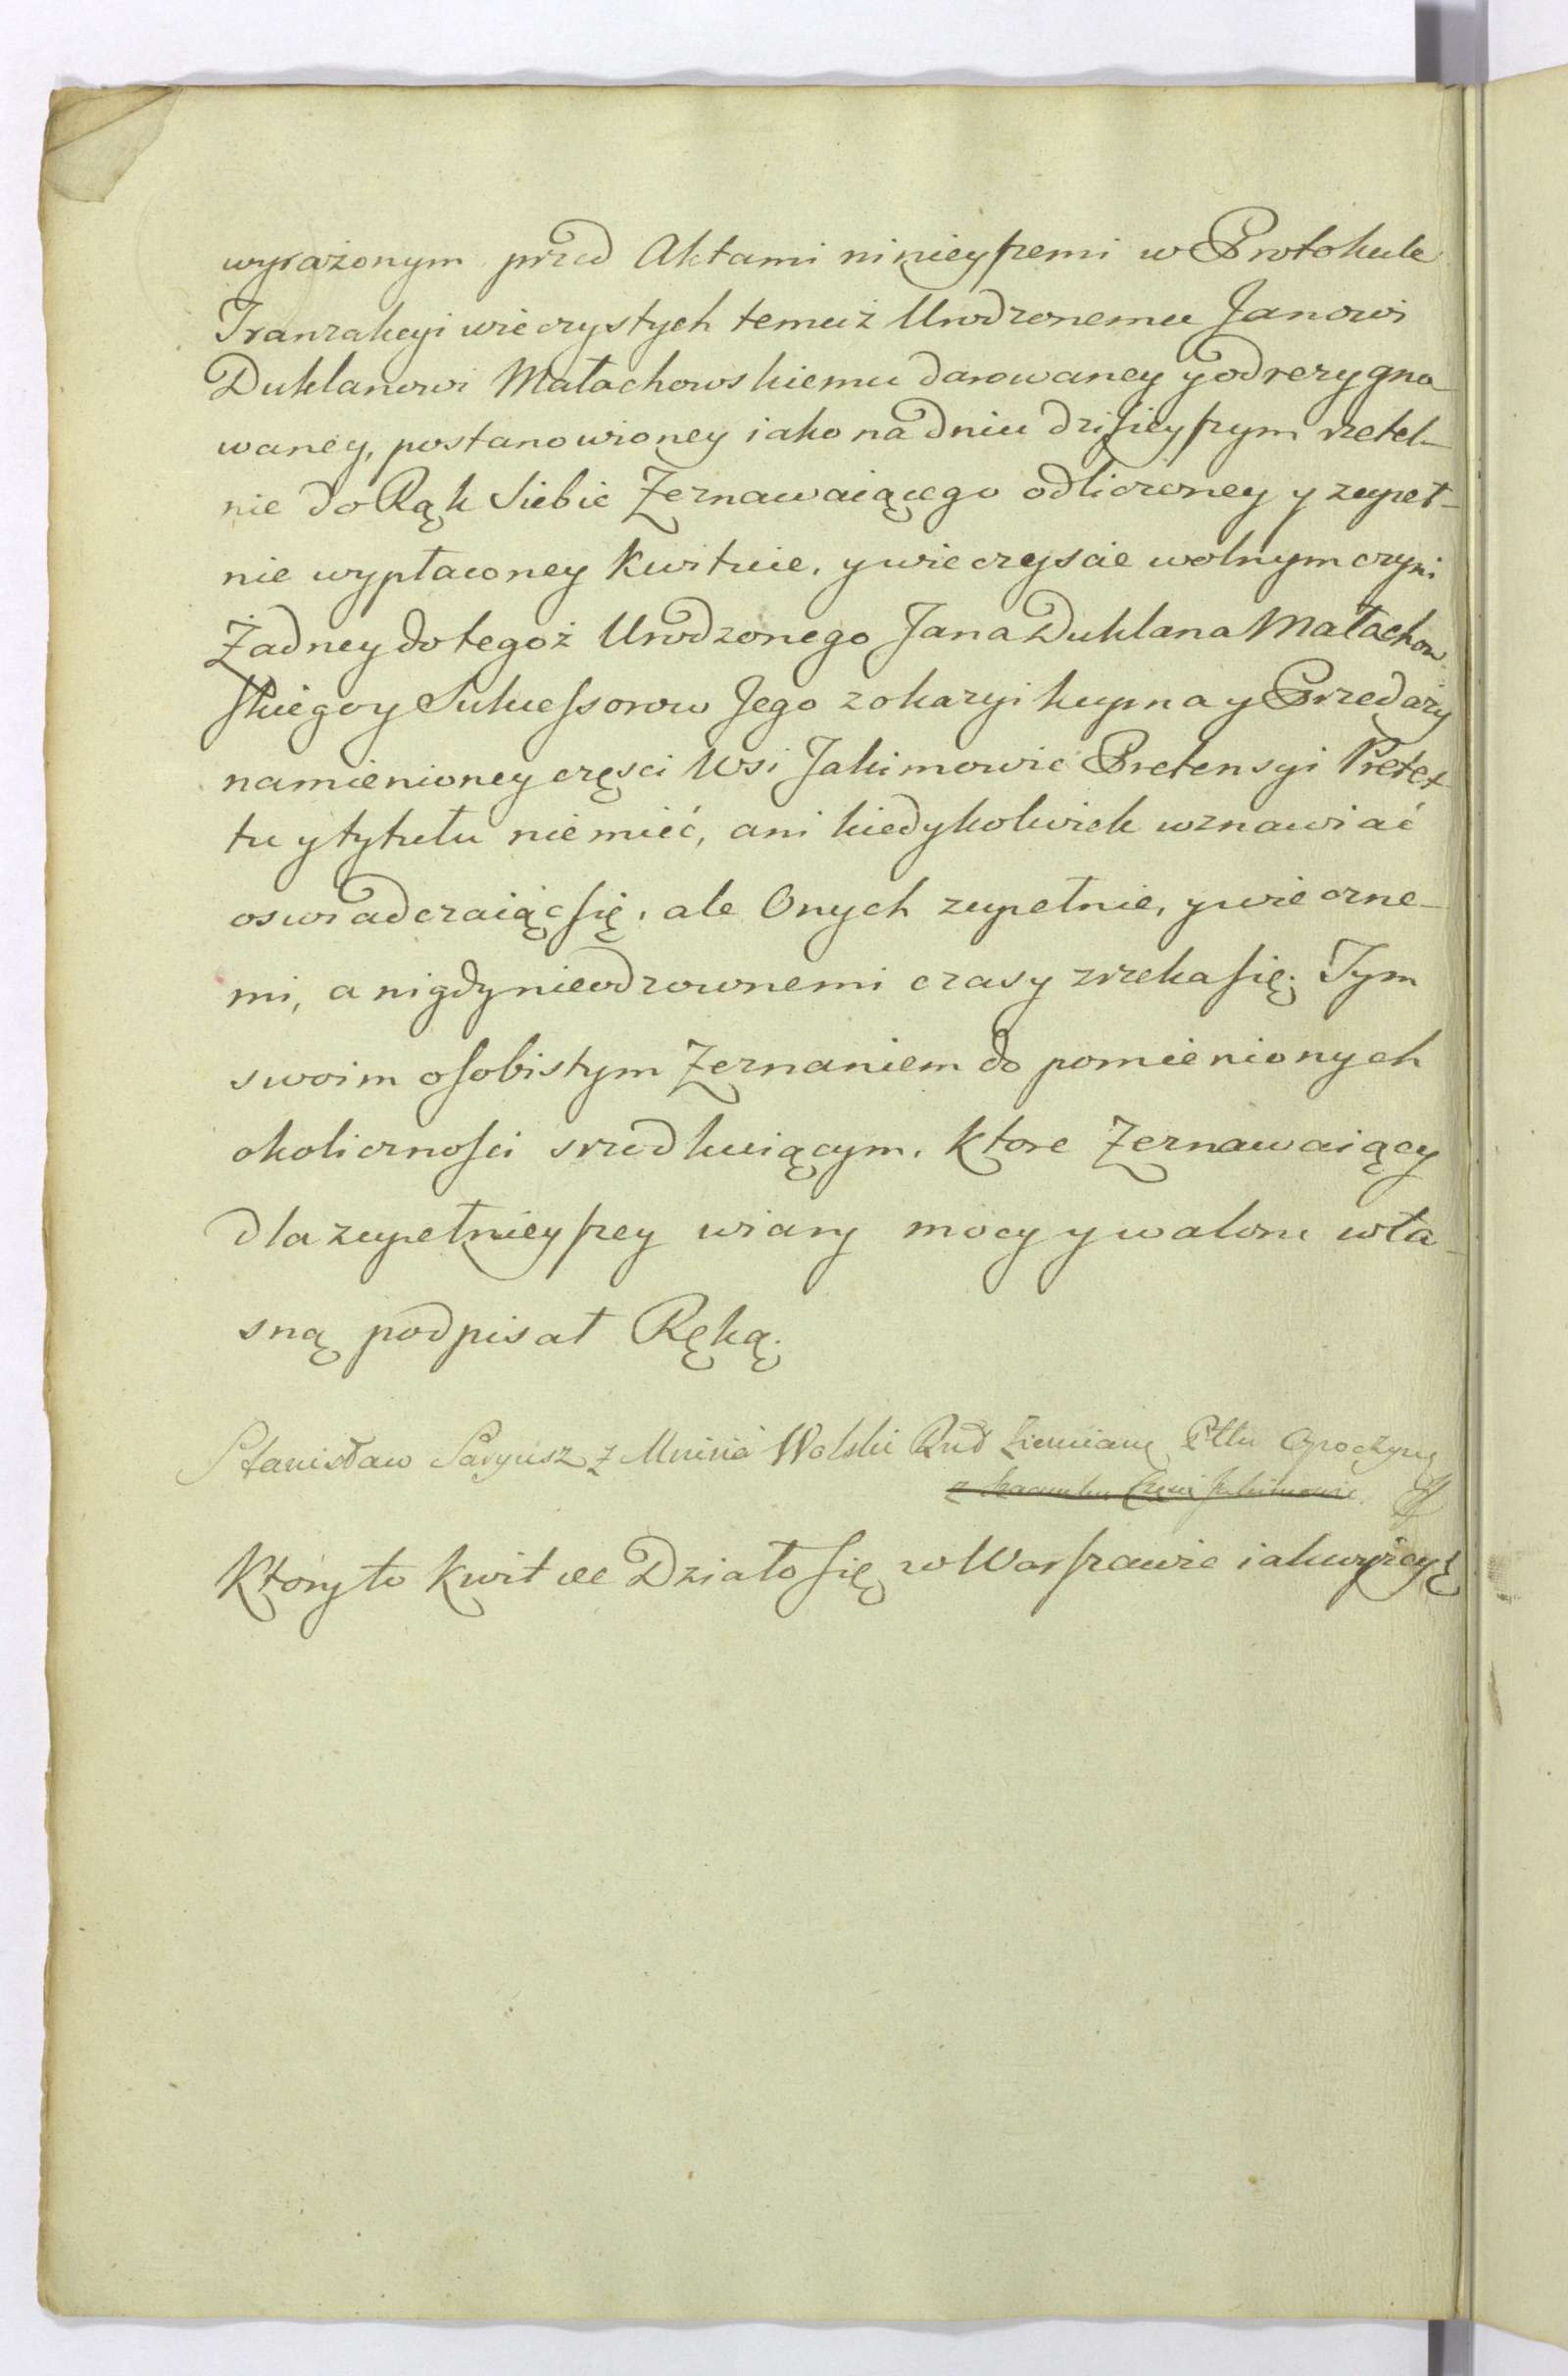 wyrażonym przed Aktami ninieyszemi w Protokule
Tranzakcyi wieczystych temuż Urodzonemu Janowi
Duklanowi Małachowskiemu darowaney y odrezygno
waney, postanowioney iako na dniu dzisieyszym rzetel-
nie do Rąk Siebie Zeznawaiącego odliczoney y zupeł-
nie wypłaconey kwituie, y wieczyscie wolnym czyni
Żadney do tegoż Urodzonego Jana Duklana Małachow
skiego y Sukcessorow Jego z okazyi kupna y Przedaży
namienioney części Wsi Jakimowic Pretensyi Pretex
tu y tytułu nie mieć, ani kiedykolwiek wznawiać
oswiadczaiąc się, ale Onych zupełnie, y wieczne-
mi, a nigdy nieodzownemi czasy zrzeka się. Tym
swoim osobistym Zeznaniem do pomienionych
okoliczności srzodkuiącym. Ktore Zeznawaiący
dla zupełnieyszey wiary mocy y waloru wła-
sną podpisał Ręką.
Stanisław Saryusz z Wolski Ziemianin Pttu Opoczyń
Ktory to Kwit &c Działo się w Warszawie iak wyżey